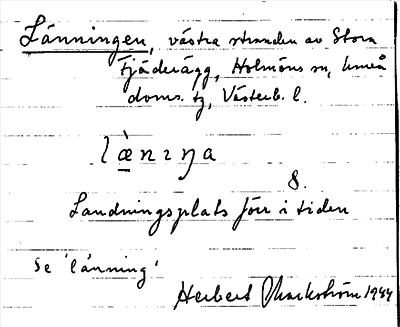 Länningen, västra stranden av Stora
Fjäderägg, Holmöns sn, Umeå
doms. tg, Västerb. l.
læ̀nɪŋa
8.
Landningsplats förr i tiden
Se 'länning'
Herbert Markström 1944